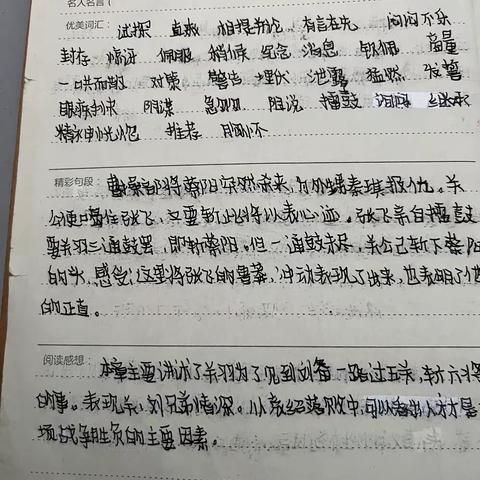 名人名言(
优美词汇: 试探 直报 相提并论 有言在先 闷闷不乐
封存 痛诉 佩服 稍候 纪念 消息 钦佩 商量
一哄而散 对策 警告 埋伏 泄露 猛然 发誓
眼疾手快 阴谋 急匆匆 阻说 擂鼓 继承
精神恍惚 推荐 胸怀
精彩句段: 曹操部将蔡阳突然杀来,为外甥秦琪报仇。关
公便叫住张飞,只要斩此将以表心迹。张飞亲自擂鼓
要关羽三通鼓罢,即斩蔡阳。但一通鼓未尽,关公已斩下蔡阳
的头,感觉这里将张飞的鲁莽,冲动表现了出来,也表明了他
的正直。
阅读感想: 本章主要讲述了关羽为了见到刘备一路过五关,斩六将
的事。表现关,刘兄弟情深。从袁绍落败中,可以看出人才是
场战争胜负的主要因素。